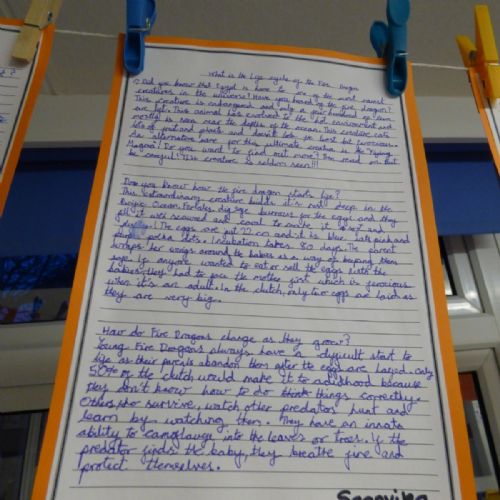 What is the Life cycle of the Fire Dragon
Did you know that Egypt is home to one of the most rarest
creatures in the universe? Have you heard of the fire dragon?
This creature is endangered and only a few hundred
are left. This animal has evolved to the environment and
mostly is seen near the depths of the ocean. This creature eats
lots of fruit and plants and doesn't be ferocious.
An alternative name for this ultimate creature is the "Flying
Magma". Do you want to find out more? Then read on but
be careful! This creature is seldom seen!!!
Do you know how the fire dragon starts life?
This extraordinary creature builds it's nest deep in the
Pacific Ocean. Females dig large burrows for the eggs and they
fill it with seaweed and coral to make it soft and
The eggs are put 22 cm and it is blue and pink and
polka dots. Incubation takes 80 days. The parents
wraps her wings around the babies as a way of keeping them
safe. If anyone wanted to eat or sell the eggs with the
babies, they had to face the mother first which is ferocious
when it's an adult. In the clutch, only two eggs are laid as
they are very big.
How do Fire Dragons change as they grow?
Young Fire Dragons always have a difficult start to
life as their parents abandon them after the eggs are layed. only
50% of the clutch would make it to adulthood because
they don't know how to do things correctly.
Others, who survive, watch other predators hunt and
learn by watching them. They have an innate
ability to camoflauge into the leaves or trees. If the
predator finds the baby, they breathe fire and
protect themselves.